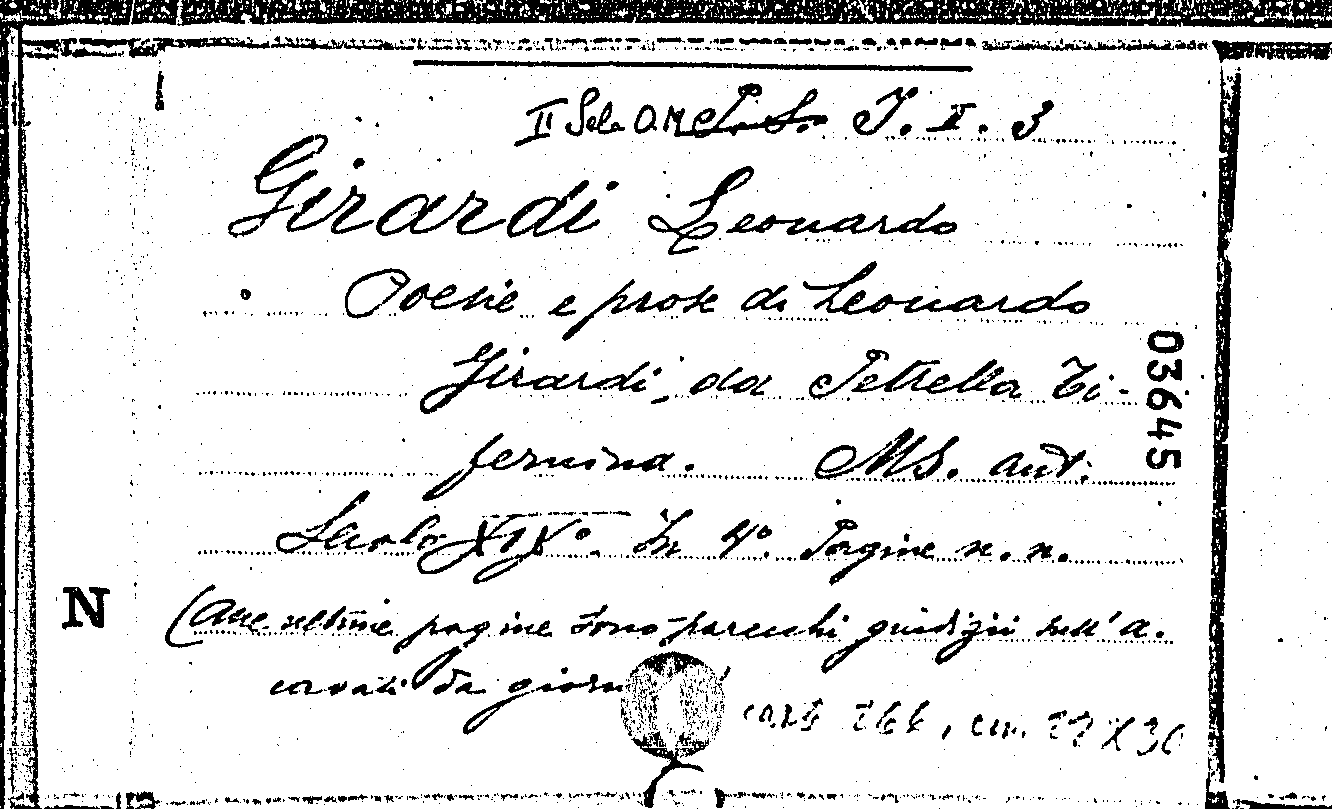 II Sala O.M. P. S. J. II. 3
Girardi Leonardo
Poesie e prose di Leonardo
Girardi, da Petrella Ti-
fernina. MS. aut.
Secolo XIX°. In 4°. Pagine n. n.
03645
N
(Alle ultime pagine sono parecchi giudizii sull'a.
cavati da giorn
carte 266, cm. 27X30